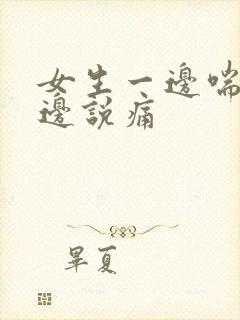 女生一邊喘
邊說痛
畢夏